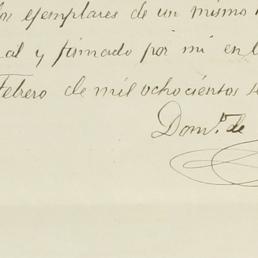 los ejemplares de un mismo
al y firmado por mi en
Febrero de mil ochocientos
Dom.º de